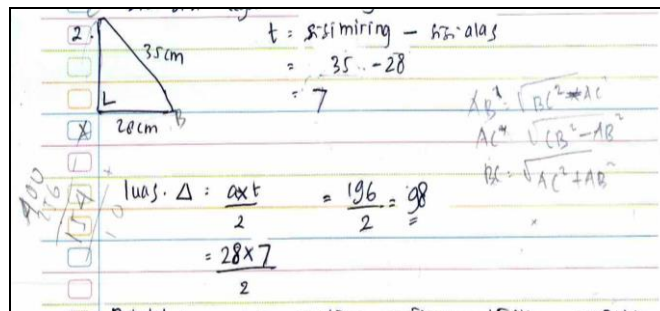 2.
35cm
28cm
B
t = sisi miring - sisi alas
= 35 - 28
= 7
AB² = √BC² - AC²
AC² = √CB² - AB²
BC = √AC² + AB²
luas. Δ = axt/2 = 196/2 = 98
= 28x7/2